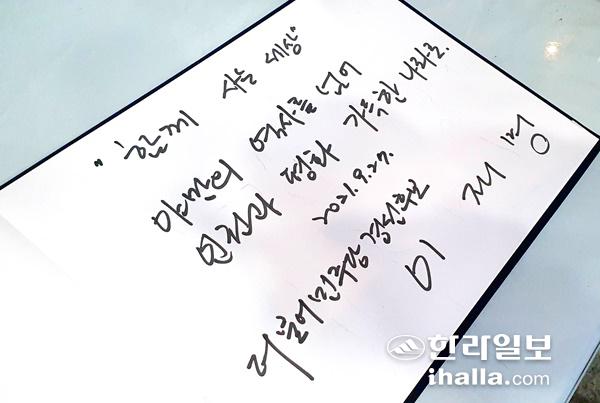 "함께 사는 세상"
야만의 역사를 넘어
인권과 평화 가득한 나라로.
2021. 9. 27.
더불어민주당 경선후보
이 재 명
한라일보
ihalla.com